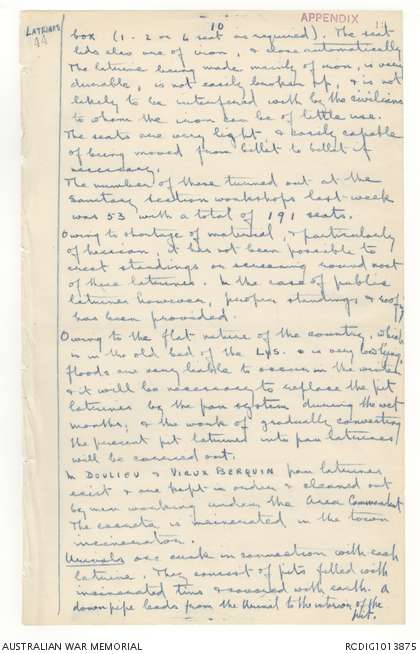 10
APPENDIX
LATRINES
44
box (1 - 2 or 4 seat as required). The seat
lids also are of iron, & close automatically.
The latrine being made mainly of iron, is very
durable, is not easily broken up, & is not
likely to be interfered with by the civilians
to whom the iron can be of little use.
The seats are very light, & easily capable
of being moved from billet to billet if
necessary.
The number of these turned out at the
Sanitary Section workshops last week
was 53 with a total of 191 seats.
Owing to shortage of material, & particularly
of hessian, it has not been possible to
erect standings or screening round most
of these latrines. In the case of public
latrines however, proper standings & roof
has been provided.
Owing to the flat nature of the country, which
is in the old bed of the LYS. & is very low lying,
floods are very liable to occur in the winter
& it will be necessary to replace the pit
latrines by the pan system during the wet
months, & the work of gradually converting
the present pit latrines into pan latrines
will be carried out.
In DOULIEU & VIEUX BERQUIN pan latrines
exist & are kept in order & cleaned out
by men working under the Area Commandant.
The excreta is incinerated in the town
incinerator.
Urinals are sunk in connection with each
latrine. They consist of pits filled with
incinerated tins & covered with earth. A
down pipe leads from the Urinal to the interior of the
pit.
AUSTRALIAN WAR MEMORIAL
RCDIG1013875